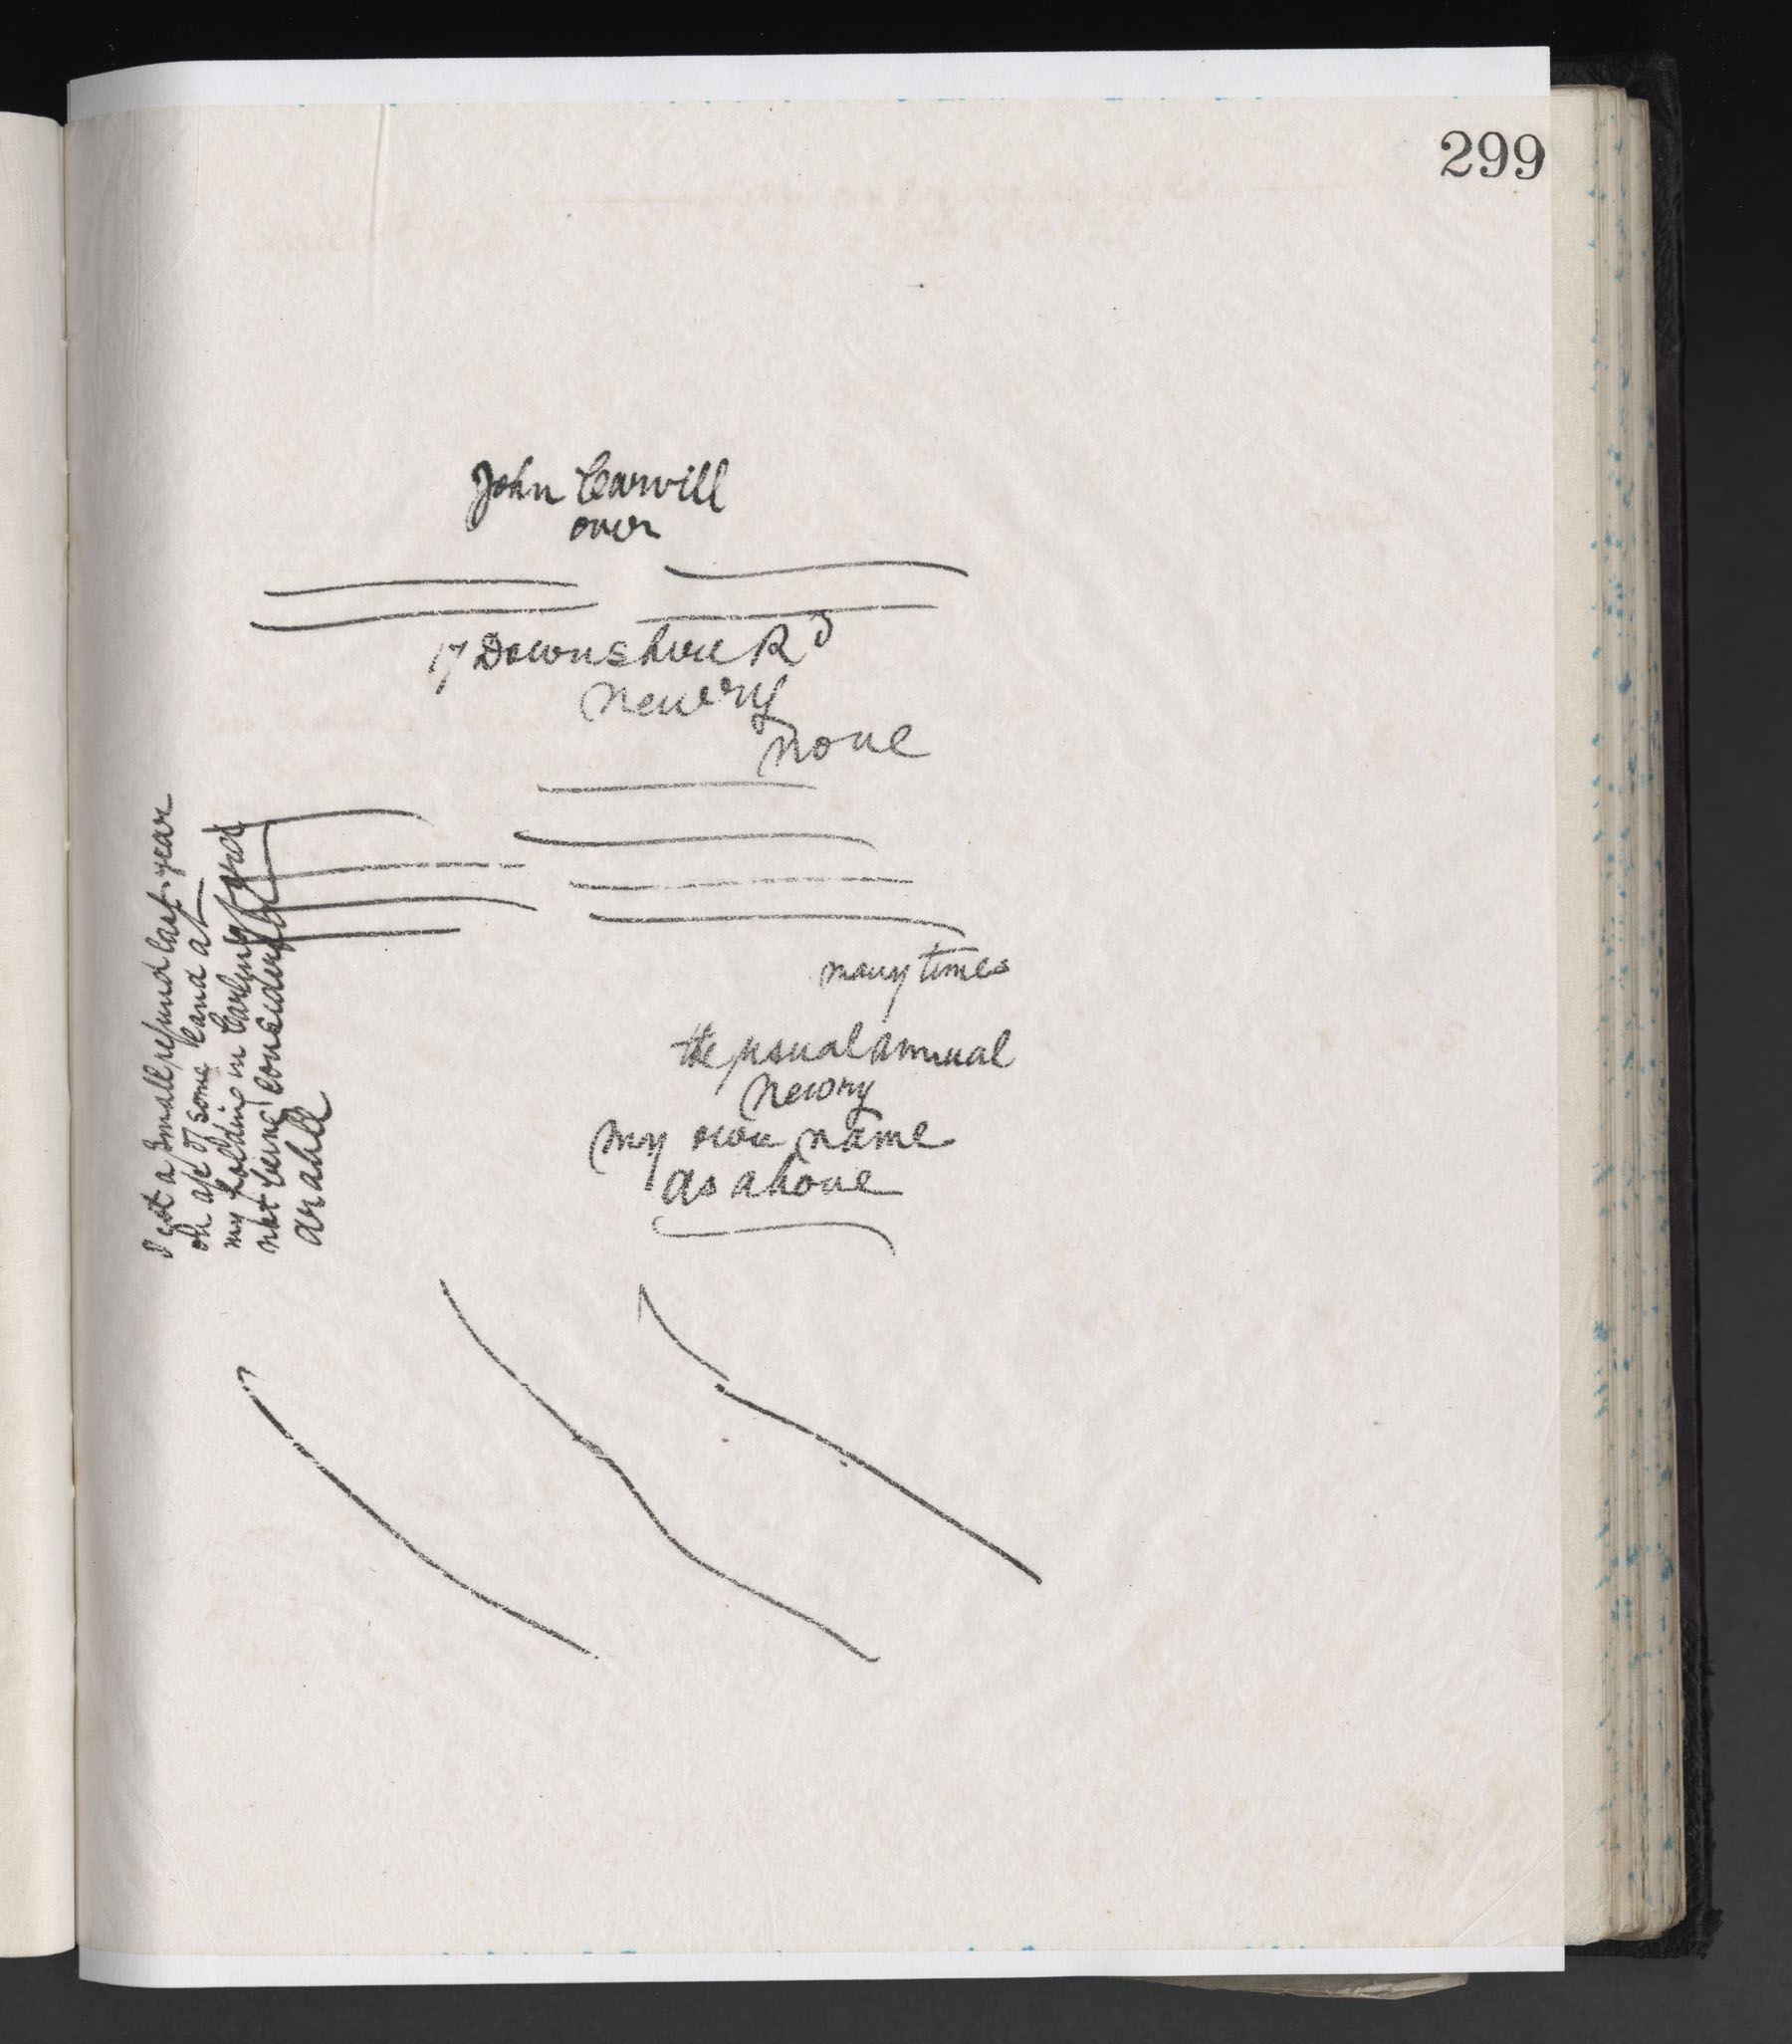 299
John Carvill
over
17 Downshire Rd
Newry
none
many times
the usual annual
Newry
my own name
as above
I got a small refund last year
on a/c of some land at
my holding in Carlingford
not being considered
arable